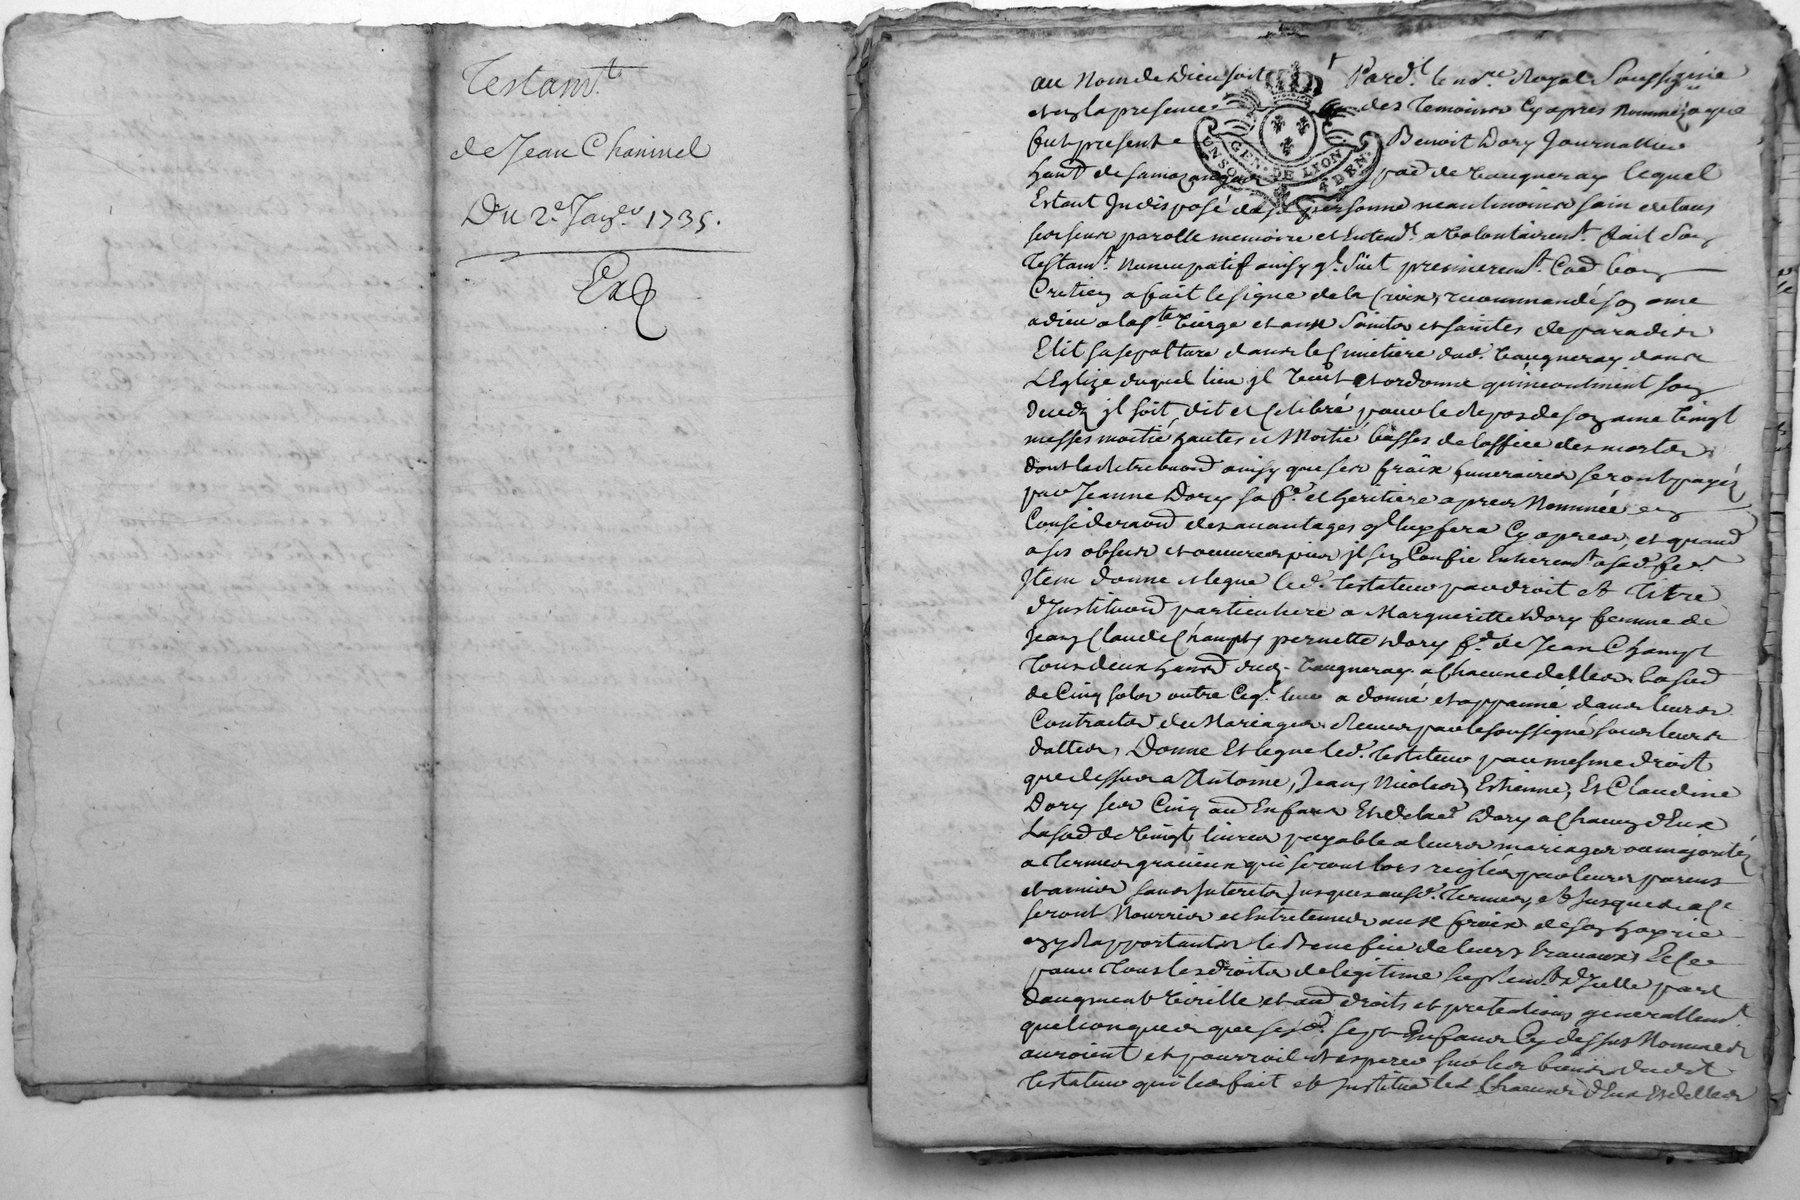 Testam.t
de Jean Chaninel
Du 2.e Janv.er 1735.
Exp
au Nom de Dieu soit Pard.t le no.re Royal Soussigné
et en la presence des Temoins cy apres nommez que
fut present Benoit Dory Journallier
GEN. DE LYON
UN SOL 4 DEN.
hant de par.d de Vaugneray lequel
Estant Indisposé de sa personne neantmoins sain de tous
ses sens parolle memoire et entend.t a volontairem.t fait son
Testam.t Nuncupatif ainsy q.l suit premierem.t Com.e bon
Cretien a fait le signe de la Croix, recommandé son ame
a dieu a la s.te Vierge et aux Saints et saintes de paradis
Elit sa sepulture dans le Cimetiere dud. Vaugneray dans
L'Eglize duquel lieu jl veut et ordonne qu'incontinent son
deced jl soit dit et Celebré pour le repos de son ame vingt
messes moitié hautes et Moitié basses de l'office des morts
dont la retribuon ainsy que ses fraix funeraires seront payéz
par Jeanne Dory sa f.e et heritiere apres Nommée en
Consideraon des avantages q.l luy fera Cy apres, et quand
a ses obseques et oeuvres pies jl s'en Confie Entierem.t a sad. fe.
Jtem donne et legue led. Testateur par droit et Titre
d'Jnstituon particuliere a Margueritte Dory femme de
Jean Claude Champt, pernette Dory f.e de Jean Champt
Tous deux hans dud. Vaugneray a Chacune d'elles la som.e
de Cinq sols outre Ceq.l leur a donné et appanné dans leurs
Contracts de Mariages receus par le soussigné sous leurs
dattes, Donne Et legue led. Testateur par mesme droit
que dessus a Antoine, Jean, Nicolas, Estienne, Et Claudine
Dory ses Cinq au.es Enfans Et de lad. Dory a Chacun d'Eux
La som.e de Vingt livres payable a leurs mariages ou majoritéz
a Termes gracieux qui seront lors reiglés par leurs parens
et amis sans Jnterets Jusques ausd. Termes, et Jusques a Ce
seront Nourries et Entretenues aux fraix de son hoyrie
en y Rapportants le Benefice de leurs travaux, Et Ce
pour Tous les droits de legitime suplem.t d'Jcelle part
d'augment Virille et au.es droits et pretentions generallem.t
quelconques que sesd. sept Enfans Cy dessus Nommes
auroient et pourroient esperer sur les biens dudit
Testateur qui les fait et Jnstitue les Chacuns d'Eux Et d'elles